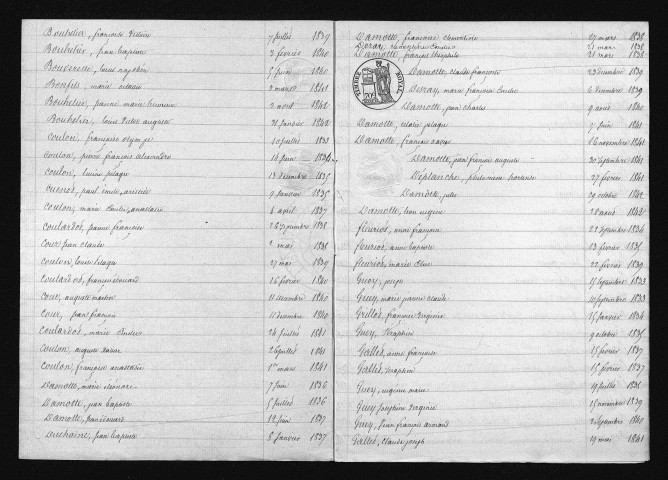 Bouhelier, françoise Victoire 7 juillet 1839
Bouhelier, jean baptiste 2 février 1840
Bouverette, louis napoléon 5 juin 1840
Bonfils, marie octavie 2 mars 1841
Bouhelier, jeanne marie 2 aout 1842
Bouhelier, louis Victor auguste 21 janvier 1842
Coulon, françoise olympe 10 juillet 1833
Coulon, pierre françois alexandre 14 juin 1834
Coulon, louise pelagie 13 décembre 1835
Cuenot, paul émile aristide 9 janvier 1835
Coulon, marie Coralie anastasie 4 avril 1837
Coulardot, jeanne françoise 28 septembre 1838
Cour jean claude 2 mai 1838
Coulon, louise pelagie 27 mai 1839
Coulardot, françois édouard 16 février 1840
Cour, auguste 11 décembre 1840
Cour, jean françois 11 décembre 1840
Coulardot, marie 24 juillet 1841
Coulon, auguste Xavier 26 juillet 1841
Coulon, françoise anastasie 1er mars 1841
Damotte, marie éléonore 7 juin 1836
Damotte, jean baptiste 5 juillet 1836
Damotte, jean édouard 12 juin 1837
Duchaine, jean baptiste 8 janvier 1837
Damotte, françoise clementine 27 mars 1838
Deray, 21 mars 1838
Damotte, françois théophile 31 mars 1838
TIMBRE ROYAL
Damotte, claude françois 23 décembre 1839
Deray, marie françoise Coralie 6 décembre 1839
Damotte, jean charles 9 aout 1840
Damotte, marie pelagie 7 juin 1841
Damotte, françois xavier 16 novembre 1841
Damotte, jean françois auguste 30 septembre 1841
Déplanche, philomène hortense 27 février 1841
Damotte, jules 29 octobre 1842
Damotte, leon eugene 28 aout 1842
fleuriot, marie françoise 21 septembre 1834
fleuriot, anne baptiste 13 février 1835
fleuriot, marie Elise 22 février 1839
Guey, joseph 17 septembre 1833
Guey, marie jeanne claude 10 septembre 1833
Grillot, françoise Virginie 15 janvier 1834
Guey, Séraphine 9 octobre 1835
Gallet, anne françoise 15 février 1837
Gallet, Séraphine 15 février 1837
Guey, eugénie marie 19 juillet 1838
Guey joséphine Virginie 15 novembre 1839
Guey, jean françois armand 2 septembre 1840
Gallet, claude joseph 19 mai 1841